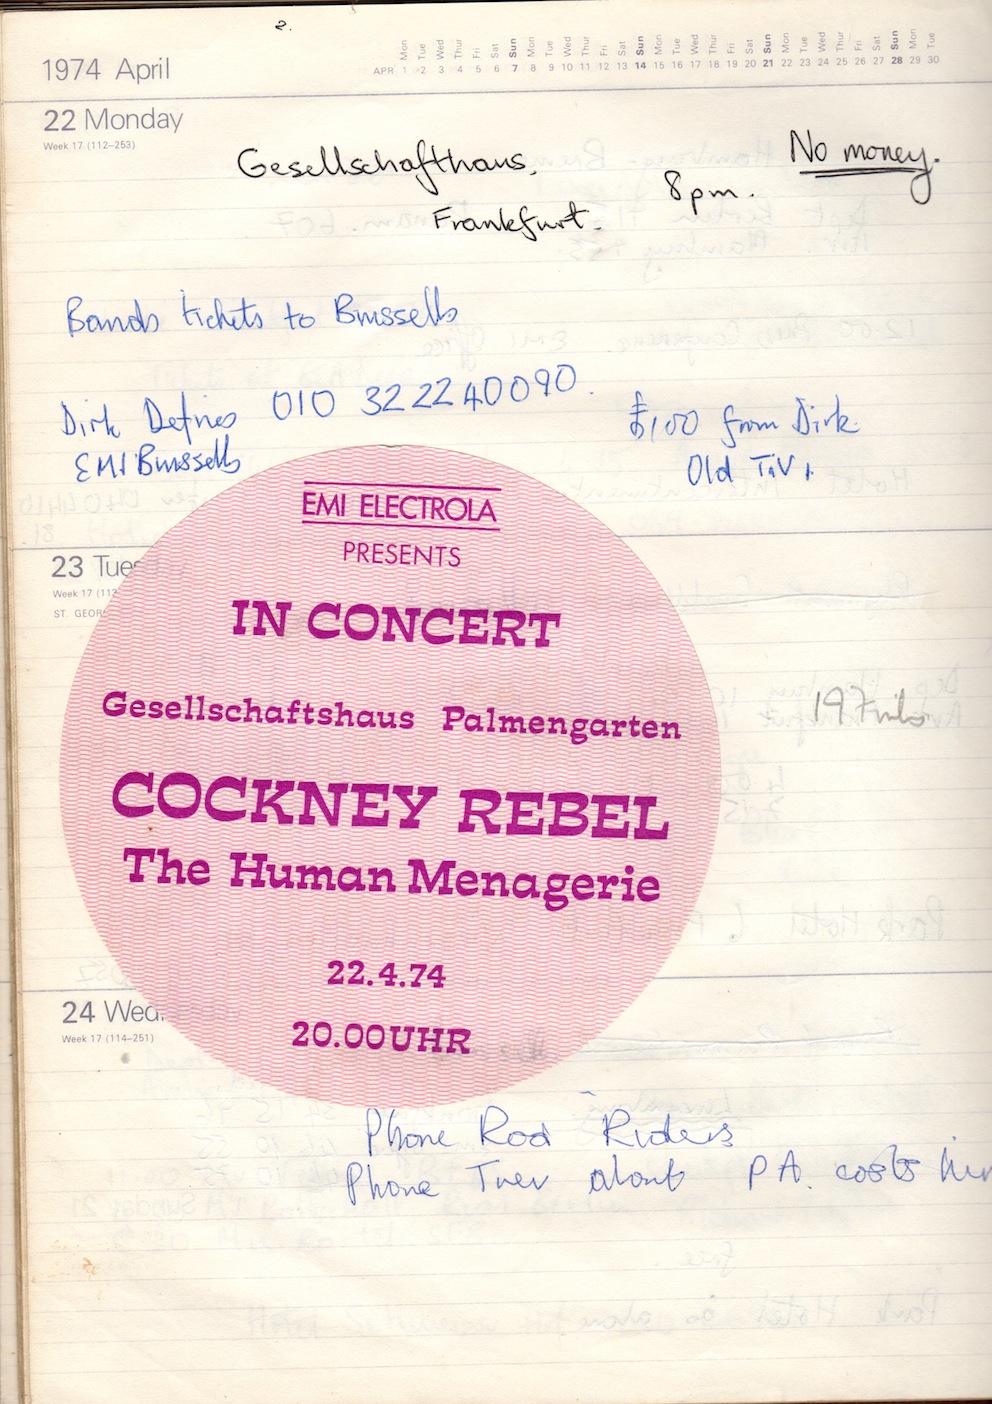 2.
1974 April
Mon Tue Wed Thur Fri Sat Sun Mon Tue Wed Thur Fri Sat Sun Mon Tue Wed Thur Fri Sat Sun Mon Tue Wed Thur Fri Sat Sun Mon Tue
APR 1 2 3 4 5 6 7 8 9 10 11 12 13 14 15 16 17 18 19 20 21 22 23 24 25 26 27 28 29 30
22 Monday
Week 17 (112–253)
Gesellschafthaus,
Frankfurt.
8pm.
No money.
Bands tickets to Brussells
Dirk 010 32 22 40090.
EMI Brussells
£100 from Dirk.
Old T.V.
23 Tues
Week 17 (113
ST. GEOR
EMI ELECTROLA
PRESENTS
IN CONCERT
Gesellschaftshaus Palmengarten
COCKNEY REBEL
The Human Menagerie
22.4.74
20.00UHR
24 Wed
Week 17 (114–251)
Phone Rod Riders
Phone about P.A. costs